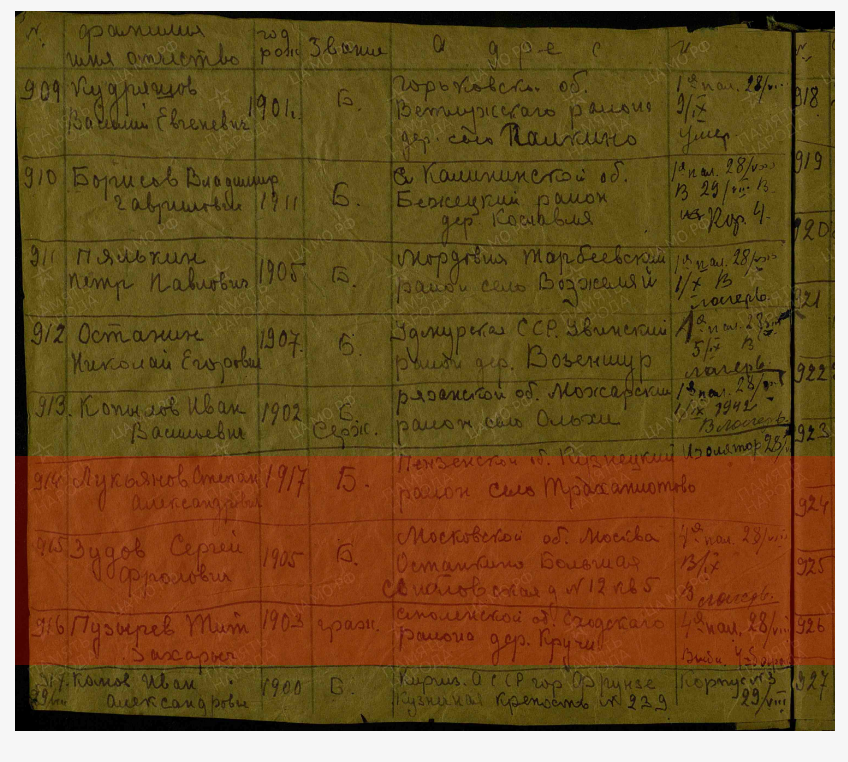 № фамилия имя отчество год рож Звание Адрес
909 Кудряшов Василий Евгеневич 1901г. Б. Горьковской об. Ветлужского района дер. село Палкино 1ая пал. 28/VIII 9/IX Умер.
910 Борисов Владимир Гаврилович 1911 Б. Калининской об. Бежецкий район дер. Кославля 1ая пал. 28/VIII В 29/VIII В Кор. 4.
911 Пялькин Петр Павлович 1905 Б. Мордовия Тарбеевский район село Возжеляй 1ая пал. 28/VIII 1/IX В лагерь.
912 Останин Николай Егорович 1907. Б. Удмурская ССР. район дер. Возеншур 1ая пал. 28/VIII 5/IX В лагерь.
913. Копылов Иван Васильевич 1902 Б. Серж. рязанской об. Можарский район село Ольхи 1ая пал. 28/VIII 1/IX 1942 В лагерь.
914 Лукьянов Степан Александрович 1917 Б. Пензенской об. Кузнецкий район село Трахониотово Изолятор 28/
915 Зудов Сергей Фролович 1905 Б. Московской об. Москва Останкино Большая д №12 кв 5 1ая пал. 28/VIII В/IX В лагерь.
916 Пузырев Мит Захарыч 1903 граж. Смоленской об. Сходского района дер. Кручи 1ая пал. 28/VIII
917. Комов Иван Александрович 1900 Б. Киргиз. АССР гор Фрунзе Кузнечная крепость № 239 Корпус №3 29/VIII
918
919
920
921
922
923
924
925
926
927